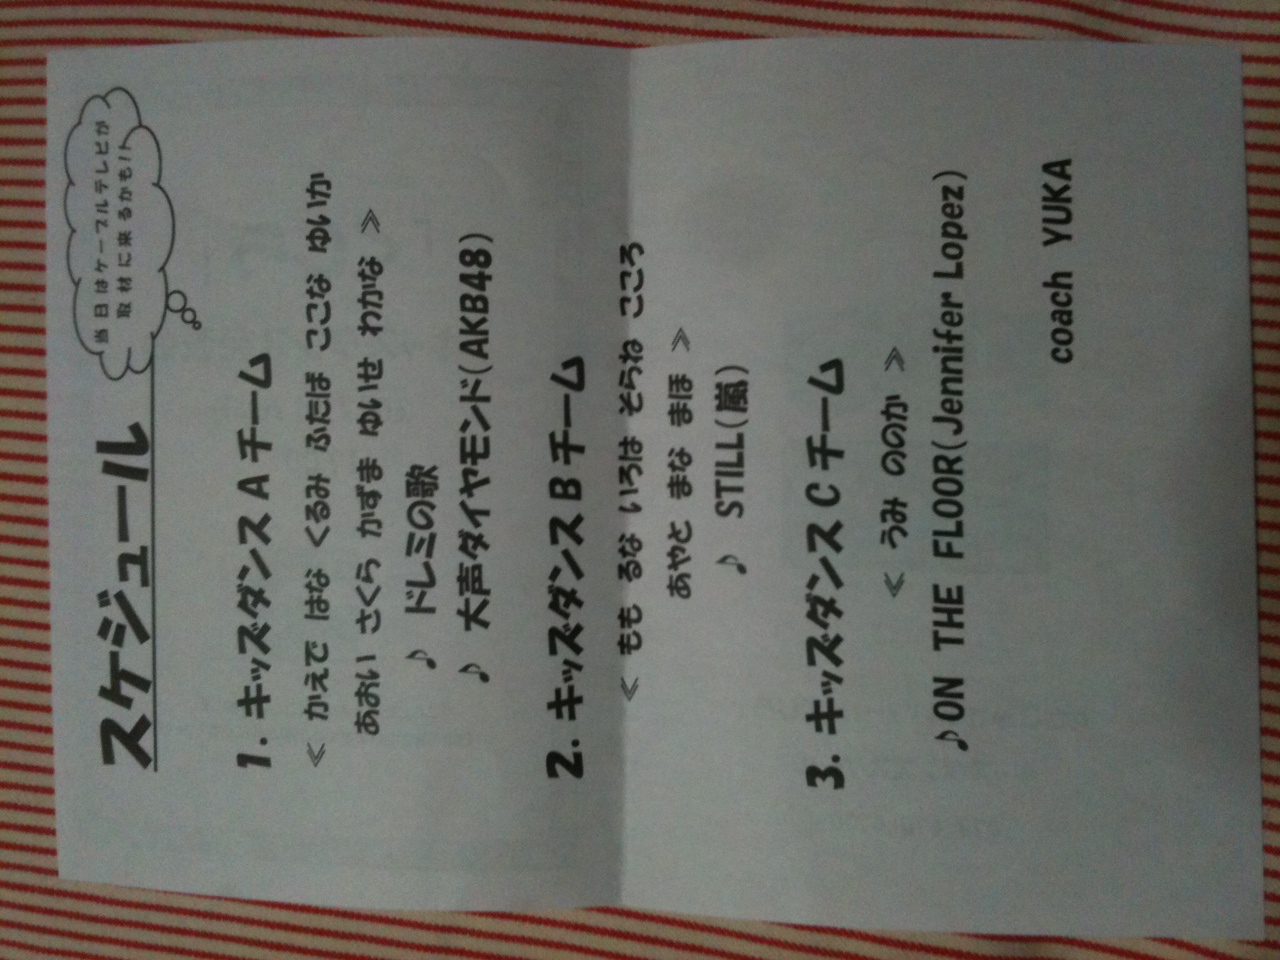 スケジュール
当日はケーブルテレビが
取材に来るかも!!
1. キッズダンス A チーム
≪ かえで はな くるみ ふたば ここな ゆいか
あおい さくら かずま ゆいせ わかな ≫
♪ ドレミの歌
♪ 大声ダイヤモンド(AKB48)
2. キッズダンス B チーム
≪ もも るな いろは そらね こころ
あやと まな まほ ≫
♪ STILL(嵐)
3. キッズダンス C チーム
≪ うみ ののか ≫
♪ON THE FLOOR(Jennifer Lopez)
coach YUKA